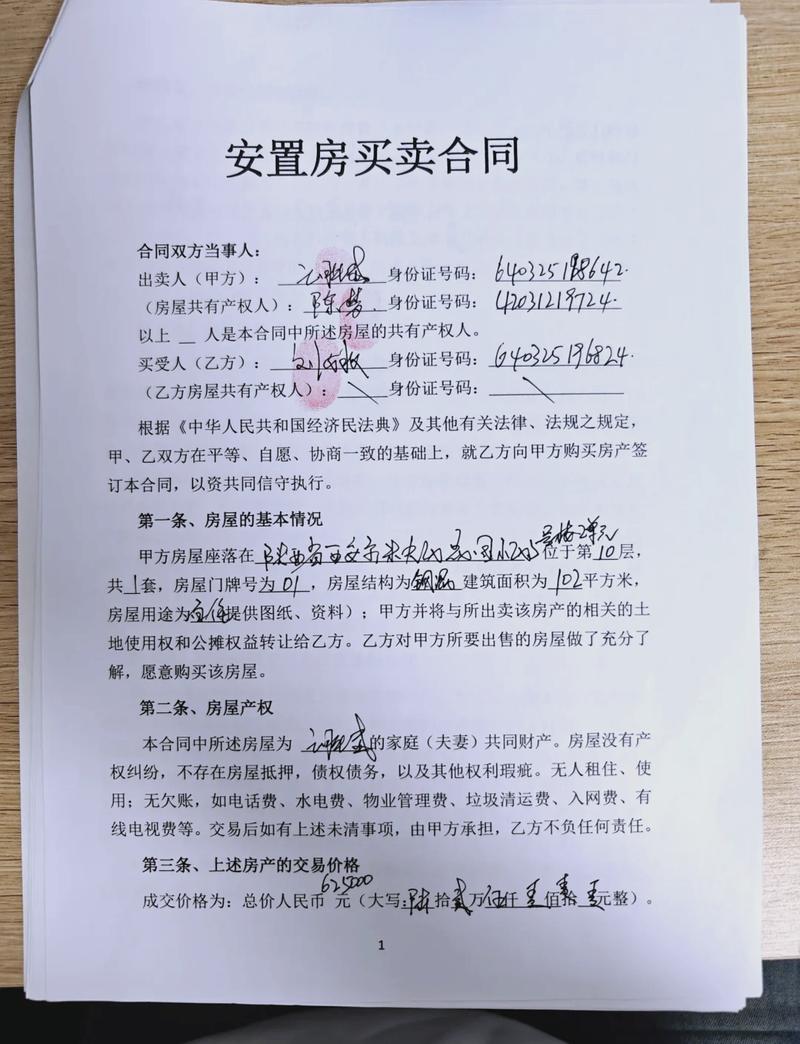 安置房买卖合同
合同双方当事人：
出卖人（甲方）： 身份证号码：
（房屋共有产权人）：陈梦 身份证号码：42031219724
以上 __ 人是本合同中所述房屋的共有产权人。
买受人（乙方）： 身份证号码：640325196824
（乙方房屋共有产权人）： 身份证号码：
根据《中华人民共和国经济民法典》及其他有关法律、法规之规定，
甲、乙双方在平等、自愿、协商一致的基础上，就乙方向甲方购买房产签
订本合同，以资共同信守执行。
第一条、房屋的基本情况
甲方房屋座落在陕西省西安市 位于第10层，
共1套，房屋门牌号为01，房屋结构为钢混建筑面积为102平方米，
房屋用途为 提供图纸、资料）；甲方并将与所出卖该房产的相关的土
地使用权和公摊权益转让给乙方。乙方对甲方所要出售的房屋做了充分了
解，愿意购买该房屋。
第二条、房屋产权
本合同中所述房屋为 的家庭（夫妻）共同财产。房屋没有产
权纠纷，不存在房屋抵押，债权债务，以及其他权利瑕疵。无人租住、使
用；无欠账，如电话费、水电费、物业管理费、垃圾清运费、入网费、有
线电视费等。交易后如有上述未清事项，由甲方承担，乙方不负任何责任。
第三条、上述房产的交易价格
成交价格为：总价人民币625000元（大写：陆拾贰万伍仟零佰零拾零元整）。
1